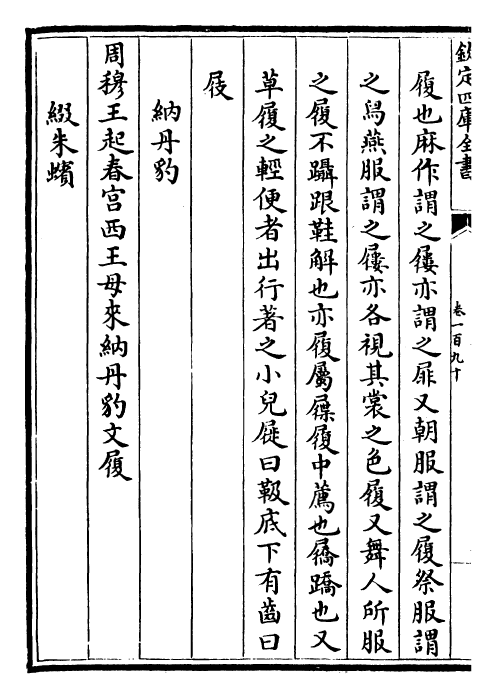 欽定四庫全書
卷一百九十
履也麻作謂之屨亦謂之扉又朝服謂之履祭服謂
之舄燕服謂之屨亦各視其裳之色履又舞人所服
之履不躡跟鞋解也亦履屬屧履中薦也屩蹻也又
草履之輕便者出行著之小兒屣曰靸底下有齒曰
屐
納丹豹
周穆王起春宫西王母來納丹豹文履
綴朱蠙